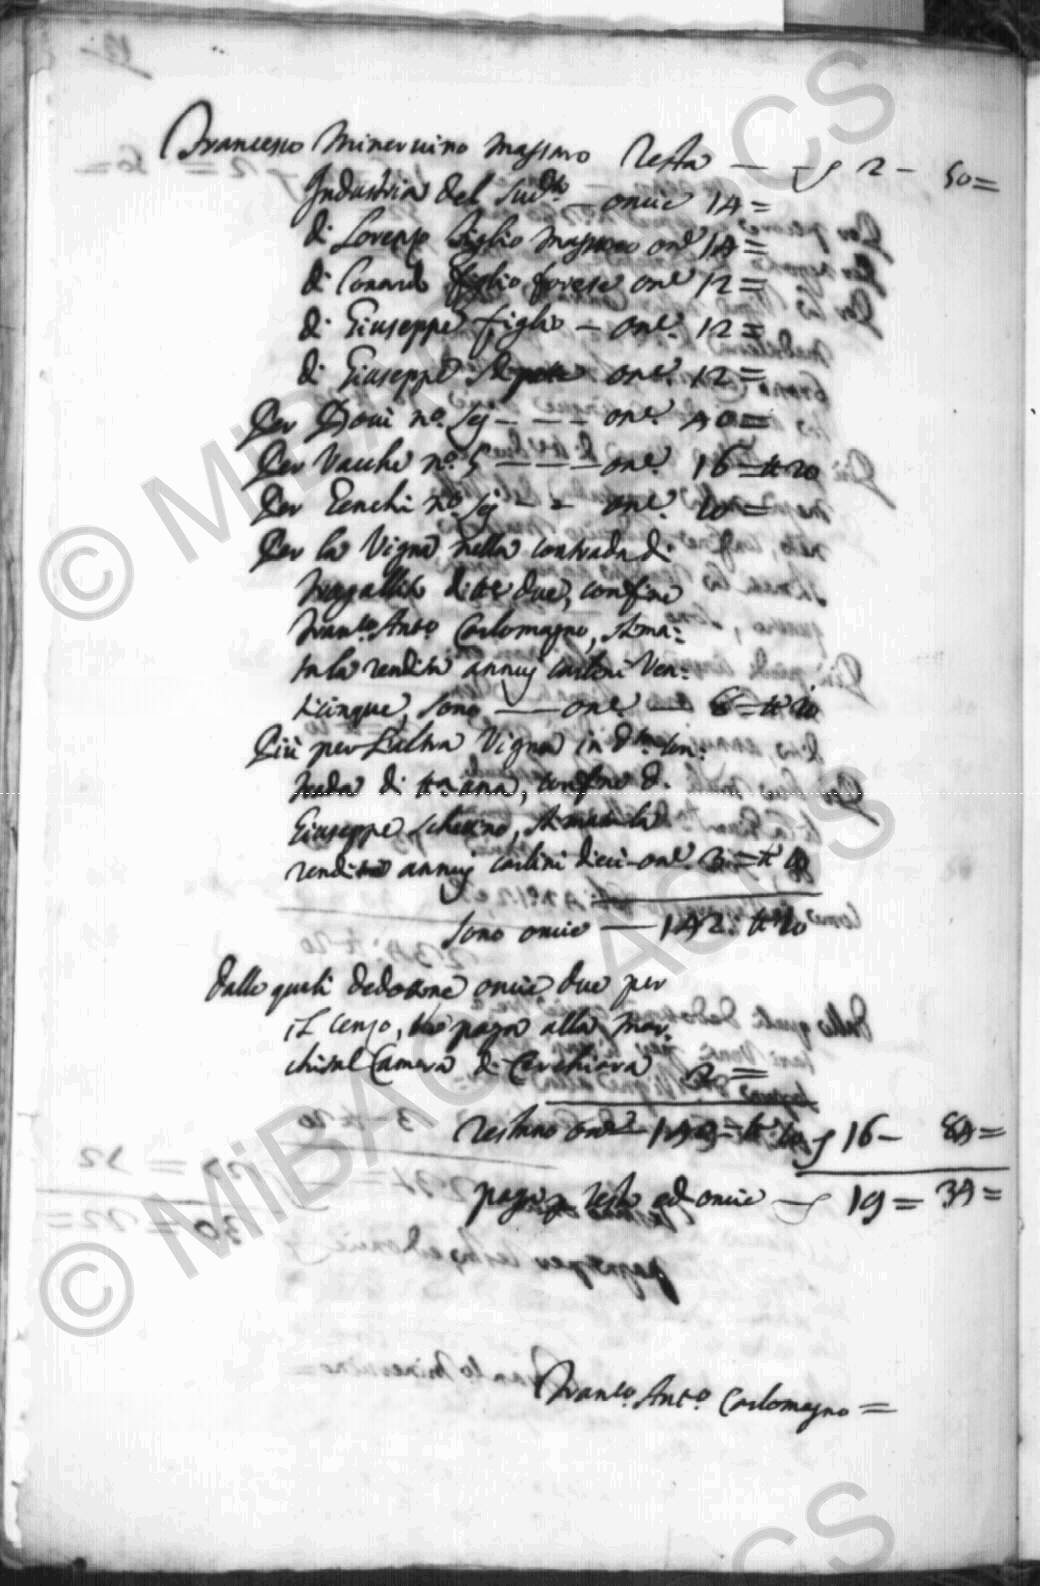 Francesco Minervino Massaro Testa — — 2 - 50 =
Industria del Sud.to — oncie 14 =
di Lorenzo figlio massaro on.e 14 =
di Conardo figlio forese on.e 12 =
di Giuseppe figlio — on.e 12 =
di Giuseppe on.e 12 =
Per Bovi n.o sej — — — on.e 40 =
Per Vacche n.o 5 — — — on.e 16 = tt 20
Per Genchi n.o sej - - on.e 10 =
Per la Vigna nella contrada di
ditte due, confine
Fran.co Ant.o Carlomagno, stima=
ta la rendita annuj carlini Ven=
ticinque, sono — on.e — 8 = tt 10
Più per l'altra Vigna in d.ta con=
trada di tt.a una, confine d.
Giuseppe Schettino, stimata la
rendita annuj carlini dieci on.e 3 = tt 10
Sono oncie — 142: tt 10
Dalle quali dedottone oncie due per
il Censo, che paga alla Mar=
chisal Camera di Cerchiara 2 =
restano on.e 140 = tt 10 16 - 84 =
paga per testa ed oncie — 19 = 34 =
Fran.co Ant.o Carlomagno =
© MiBAC ASCS
© MiBAC ASCS
CS